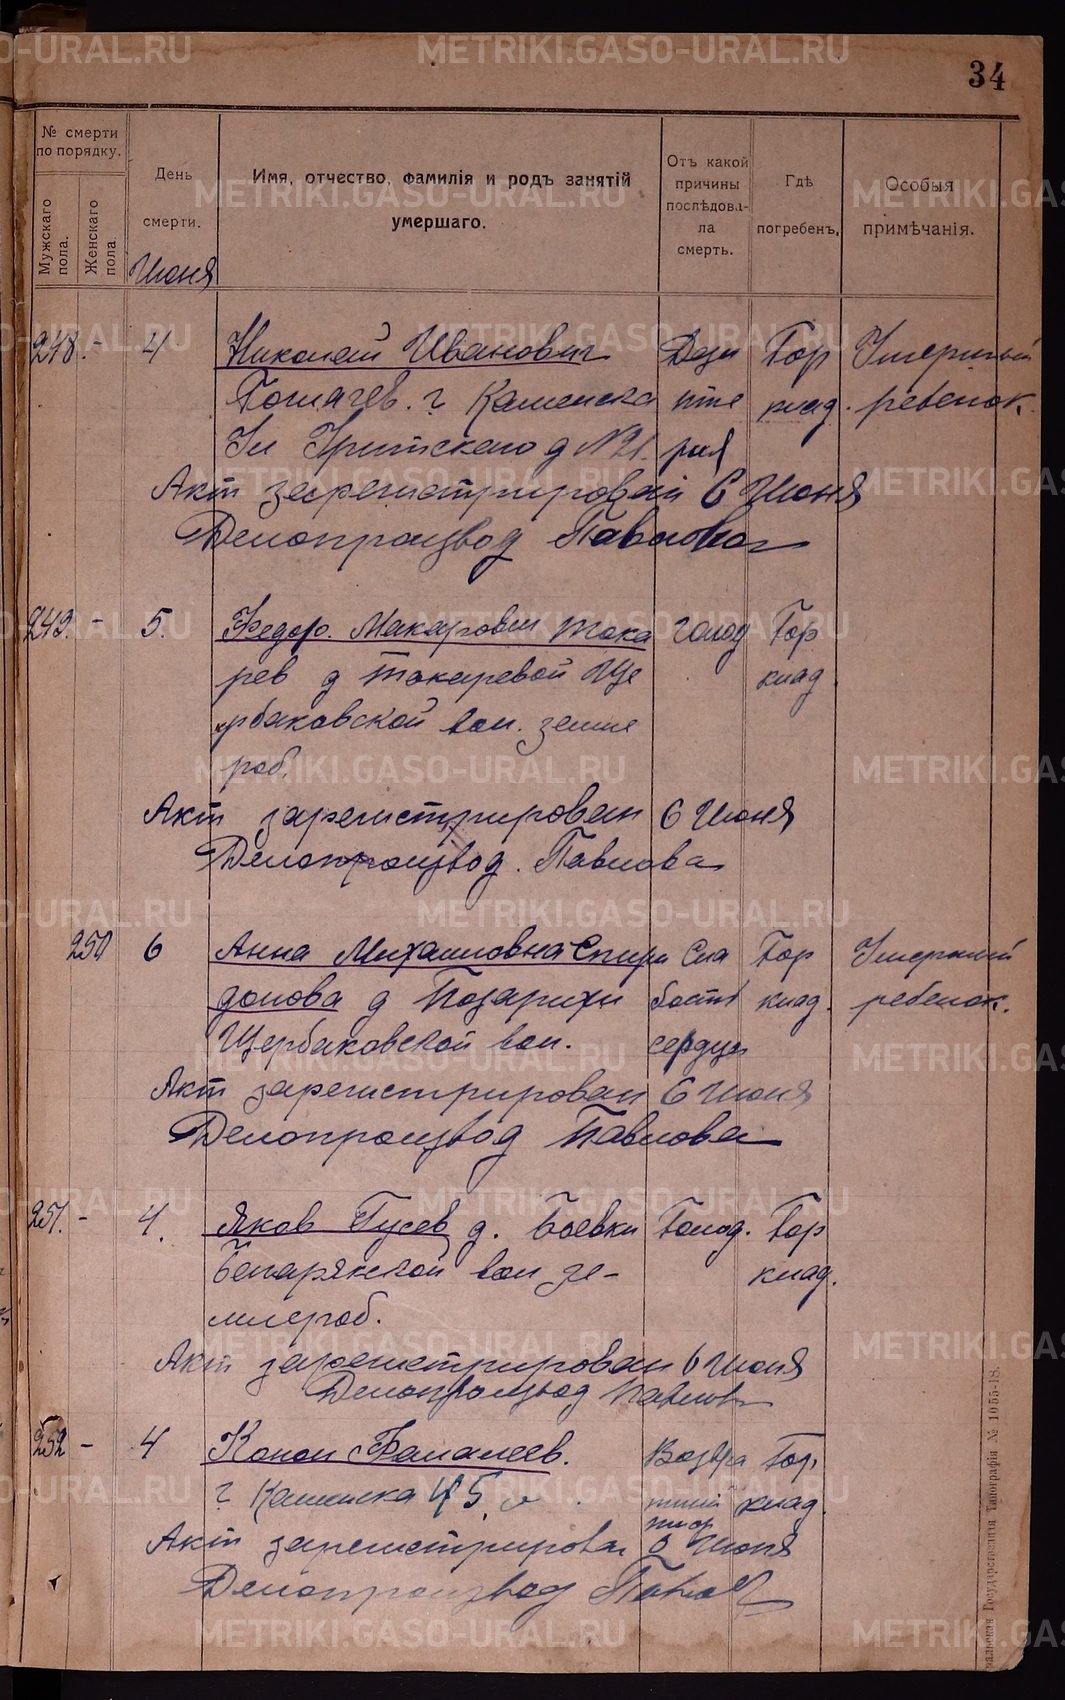 34
№ смерти по порядку.
Мужскаго пола.
Женскаго пола.
День смерти.
Имя, отчество, фамилія и родъ занятій умершаго.
Отъ какой причины послѣдовала смерть.
Гдѣ погребенъ.
Особыя примѣчанія.
Июня
248. - 4 Николай Иванович Дези Гор Умерший
г. Каменска нте клад. ребенок.
Ул д №21. рия
Акт зарегистрирован 6 Июня
Делопроизвод Павлова
249. - 5. Федор. Макарович Тока голод Гор
рев д Токаревой Ще клад.
рбаковской вол. земле
роб.
Акт зарегистрирован 6 Июня
Делопроизвод. Павлова
250 6 Анна Михайловна Спири Сла Гор Умерший
донова д Позарихи бость клад. ребенок.
Щербаковской вол. сердца
Акт зарегистрирован 6 Июня
Делопроизвод Павлова
251. - 4. Яков Гусев д. Боевки Голод. Гор
вол зе- клад.
млероб.
Акт зарегистрирован 6 Июня
Делопроизвод Павлова
252 - 4 Конон Фамалеев. Возвра Гор.
г Каменска 45 тный клад.
тиф
Акт зарегистрирован 6 Июня
Делопроизвод
Государственная Типографія № 1055-18.
METRIKI.GASO-URAL.RU